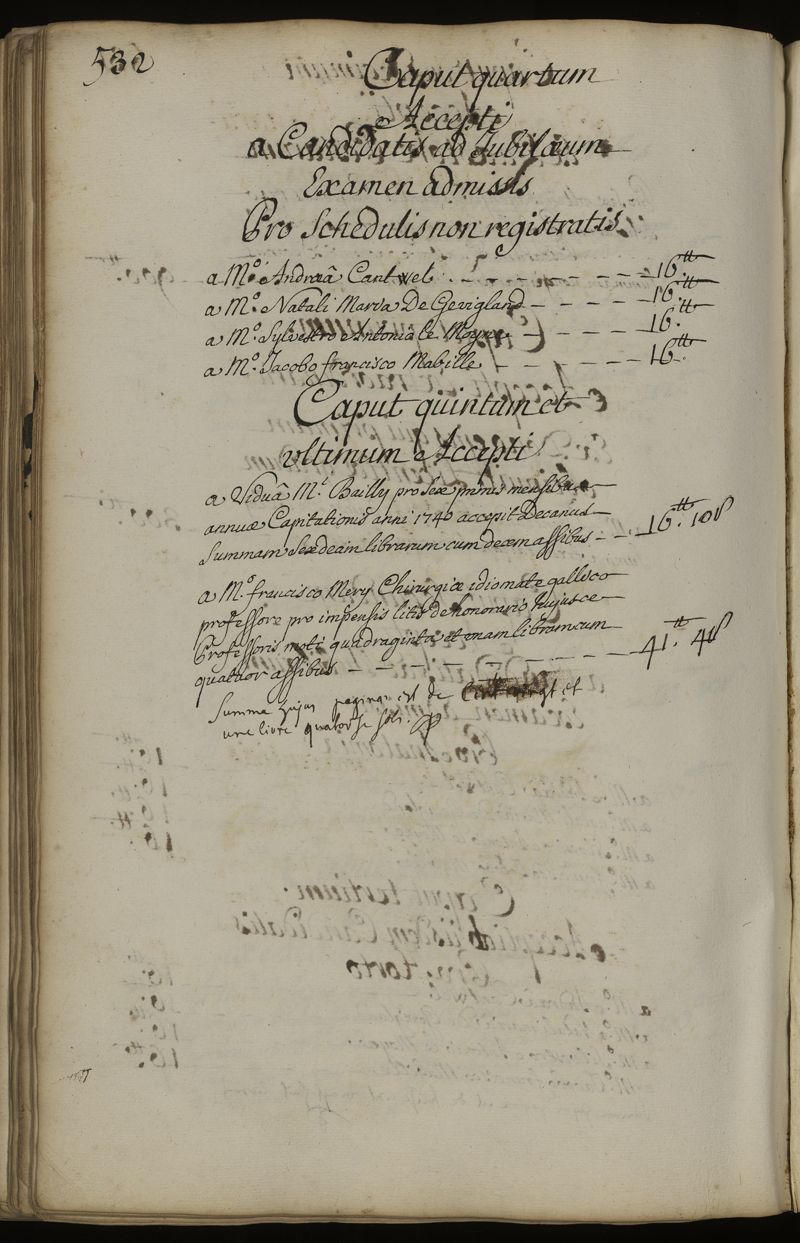 532
Caput quartum
Accepti
a Candidatis ad Jubilæum
Examen admissis
Pro Schedulis non registratis
a M.º Andreâ Cantwel . - - - - - - - 16.tt
a M.º Natali Maria De Gevigland - - - - 16.tt
a M.º Sylvestro Antonio le Moyne - - - - 16.tt
a M.º Jacobo francisco Mabille - - - - - - 16.tt
Caput quintum et
ultimum Accepti
a Viduâ M.i Bailly pro sex primis mensibus
annuæ Capitationis anni 1740 accepit Decanus
Summam Sexdecim librarum cum decem assibus - - 16.tt 10s
a M.º francisco Mery Chirurgiæ idiomate gallico
professore pro impensis litis de honorario hujusce
Professoris motæ quadraginta et unam libram cum
quatuor assibus - - - - - - - - - 41.tt 4s
Summa hujus paginæ est de Cent vingt et
une livre quatorze sols.